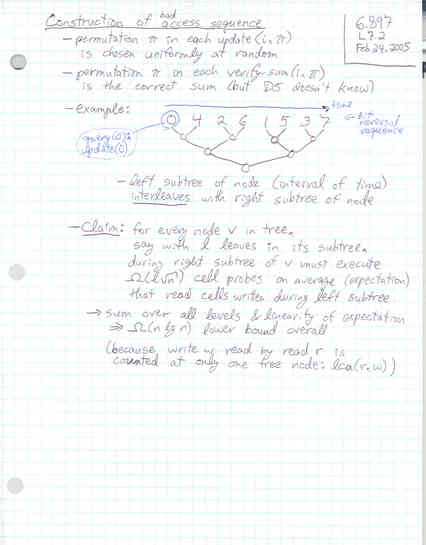 Construction of bad access sequence
6.897
L7.2
Feb 24, 2005
- permutation π in each update(i,π)
is chosen uniformly at random
- permutation π in each verify-sum(i,π)
is the correct sum (but DS doesn't know)
- example:
time
0 4 2 6 1 5 3 7
← bit reversal sequence
query(0) &
update(0)
- left subtree of node (interval of time)
interleaves with right subtree of node
- Claim: for every node v in tree,
say with l leaves in its subtree,
during right subtree of v must execute
Ω(l√n) cell probes on average (expectation)
that read cells written during left subtree
→ sum over all levels & linearity of expectation
⇒ Ω(n lg n) lower bound overall
(because write w, read by read r is
counted at only one tree node: lca(r,w))